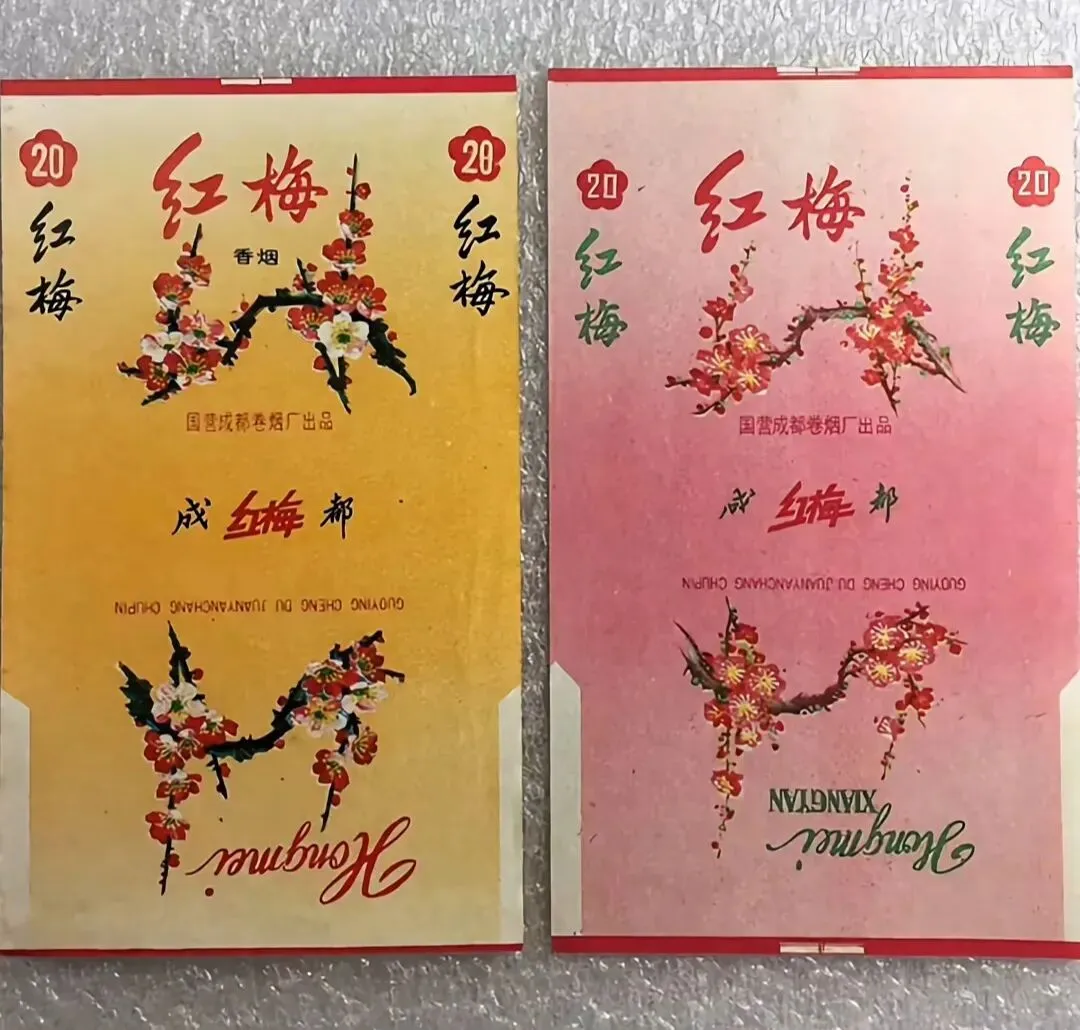 20
20
红梅
红梅
红梅
香烟
国营成都卷烟厂出品
成 红梅 都
GUOYING CHENG DU JUANYANCHANG CHUPIN
Hongmei
20
20
红梅
红梅
红梅
国营成都卷烟厂出品
成 红梅 都
GUOYING CHENG DU JUANYANCHANG CHUPIN
XIANGYAN
Hongmei